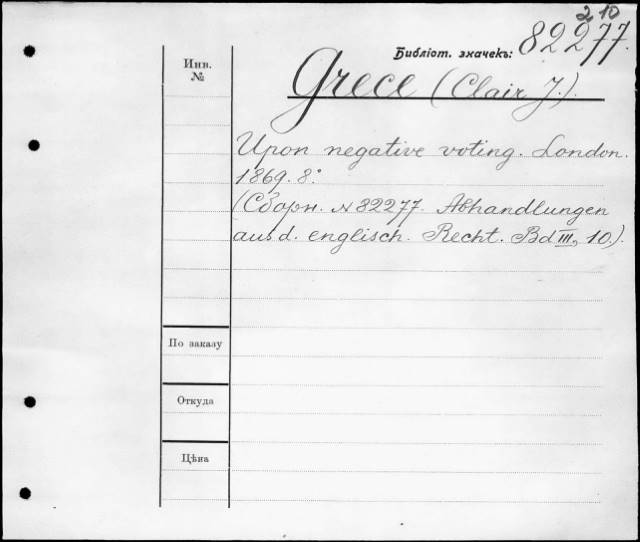 2 10
Библіот. значекъ: 82277.
Инв.
№
Grece (Clair J.).
Upon negative voting. London.
1869. 8º.
(Сборн. № 82277. Abhandlungen
aus d. englisch. Recht. Bd III, 10.).
По заказу
Откуда
Цѣна